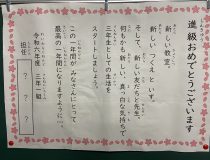 進級おめでとうございます
新しい教室。
新しいつくえといす。
そして、新しい友だちと先生。
何もかも新しい、真っ白な気持ちで
三年生としての生活を
スタートしましょう。
この一年間が みなさんにとって
最高の一年間になりますように…。
令和六年度 三年一組
担任
？
？
？